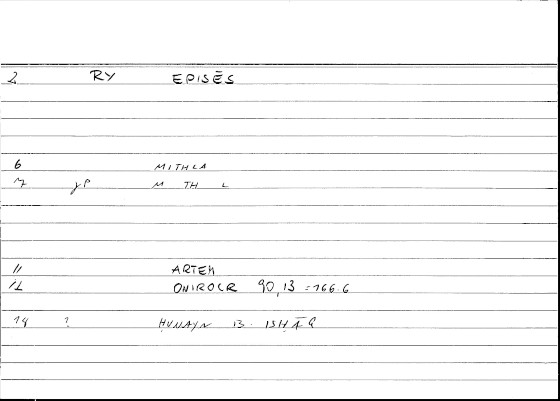 2 RY EPISĒS
6 MITHLA
7 γP M TH L
11 ARTEM
12 ONIROCR 90,13 = 166.6
14 ? ḤUNAYN B. ISḤĀQ